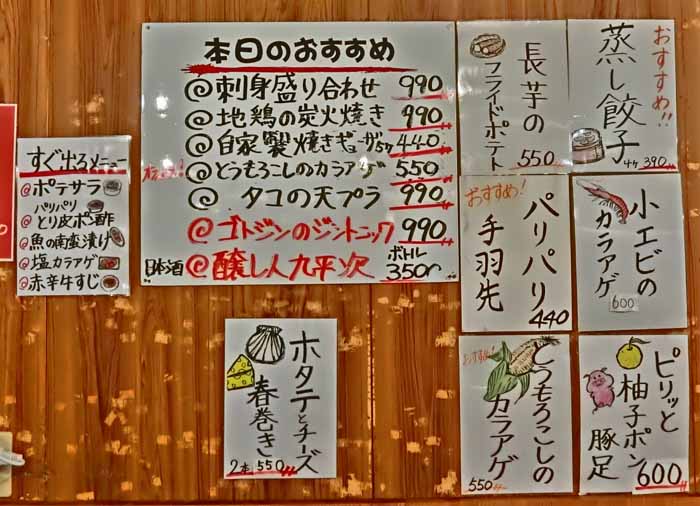 すぐ出るメニュー
◎ポテサラ
パリパリ
◎とり皮ポン酢
◎魚の南蛮漬け
◎塩カラアゲ
◎赤辛牛すじ
本日のおすすめ
◎刺身盛り合わせ 990
◎地鶏の炭火焼き 990
◎自家製焼きギョーザ5ケ 440
◎とうもろこしのカラアゲ 550
◎タコの天プラ 990
◎ゴトジンのジントニック 990
日本酒◎醸し人九平次 ボトル 3500
長芋の
フライドポテト
550
おすすめ!!
蒸し餃子
4ケ 390
おすすめ!
パリパリ
手羽先
440
小エビの
カラアゲ
600
ホタテとチーズ
春巻き
2本 550
おすすめ!
とうもろこしの
カラアゲ
550
ピリッと
柚子ポン
豚足
600